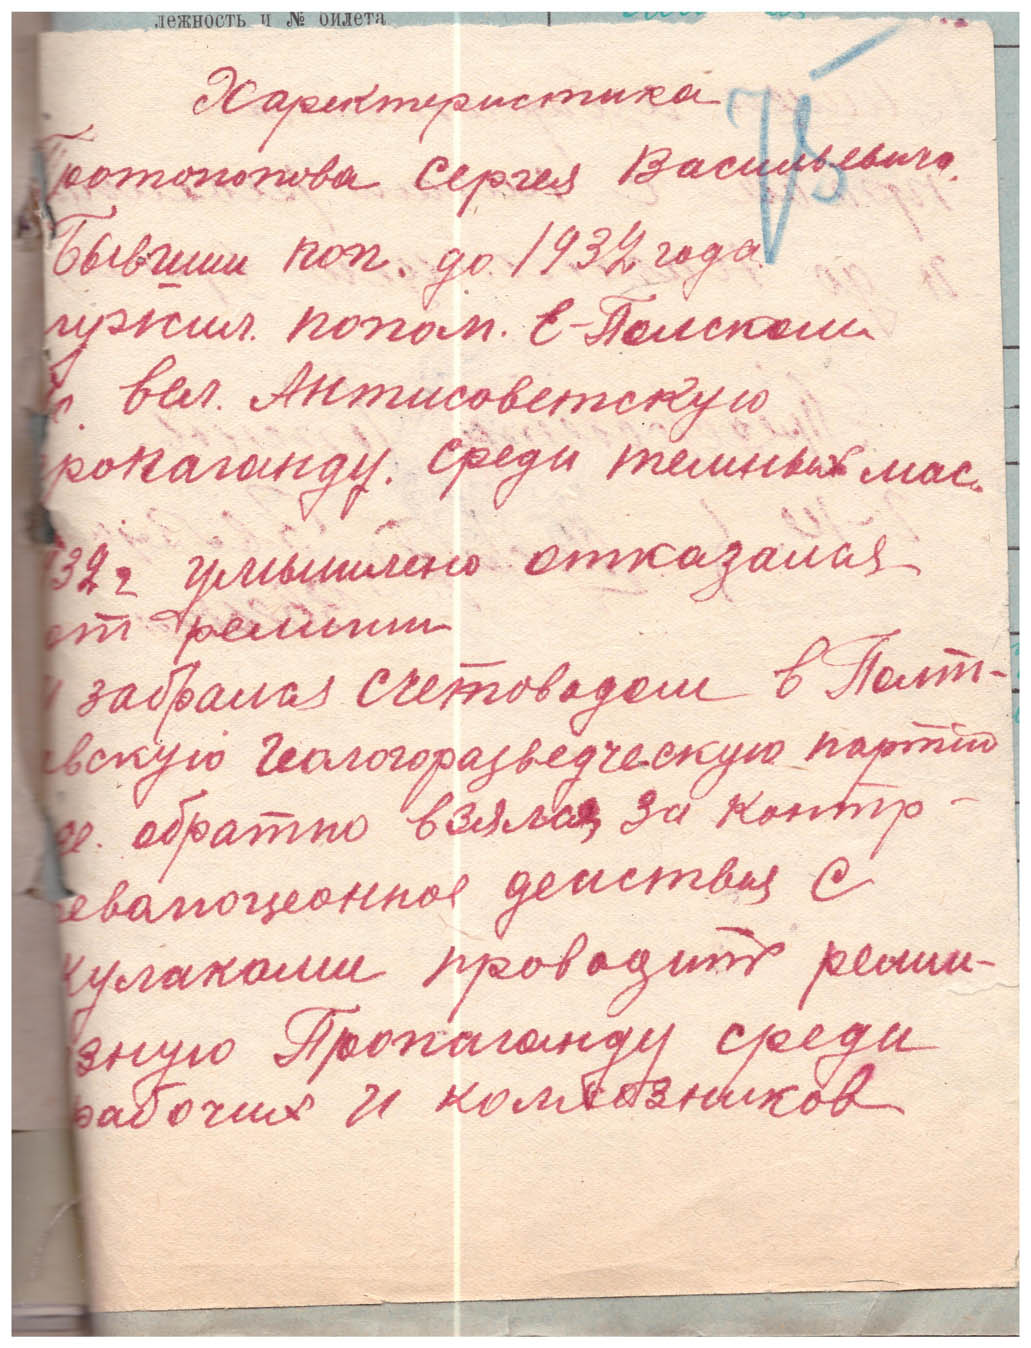 лежность и № билета
Характеристика
Протопопова Сергея Васильевича.
Бывши поп. до 1932 года
лужил. попом. в-Полском
вел. Антисоветскую
ропаганду. Среди темных мас.
32 г умышлено отказался
от религии
и забрался счетоводом в Полт-
авскую Геологоразведческую партию
де. обратно взялся за контр-
евалюционное действия с
кулаками проводит рели-
зную Пропаганду среди
рабочих и колхозников